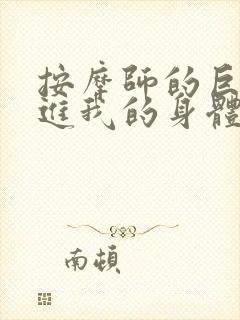 按摩師的巨
進我的身體
南頓